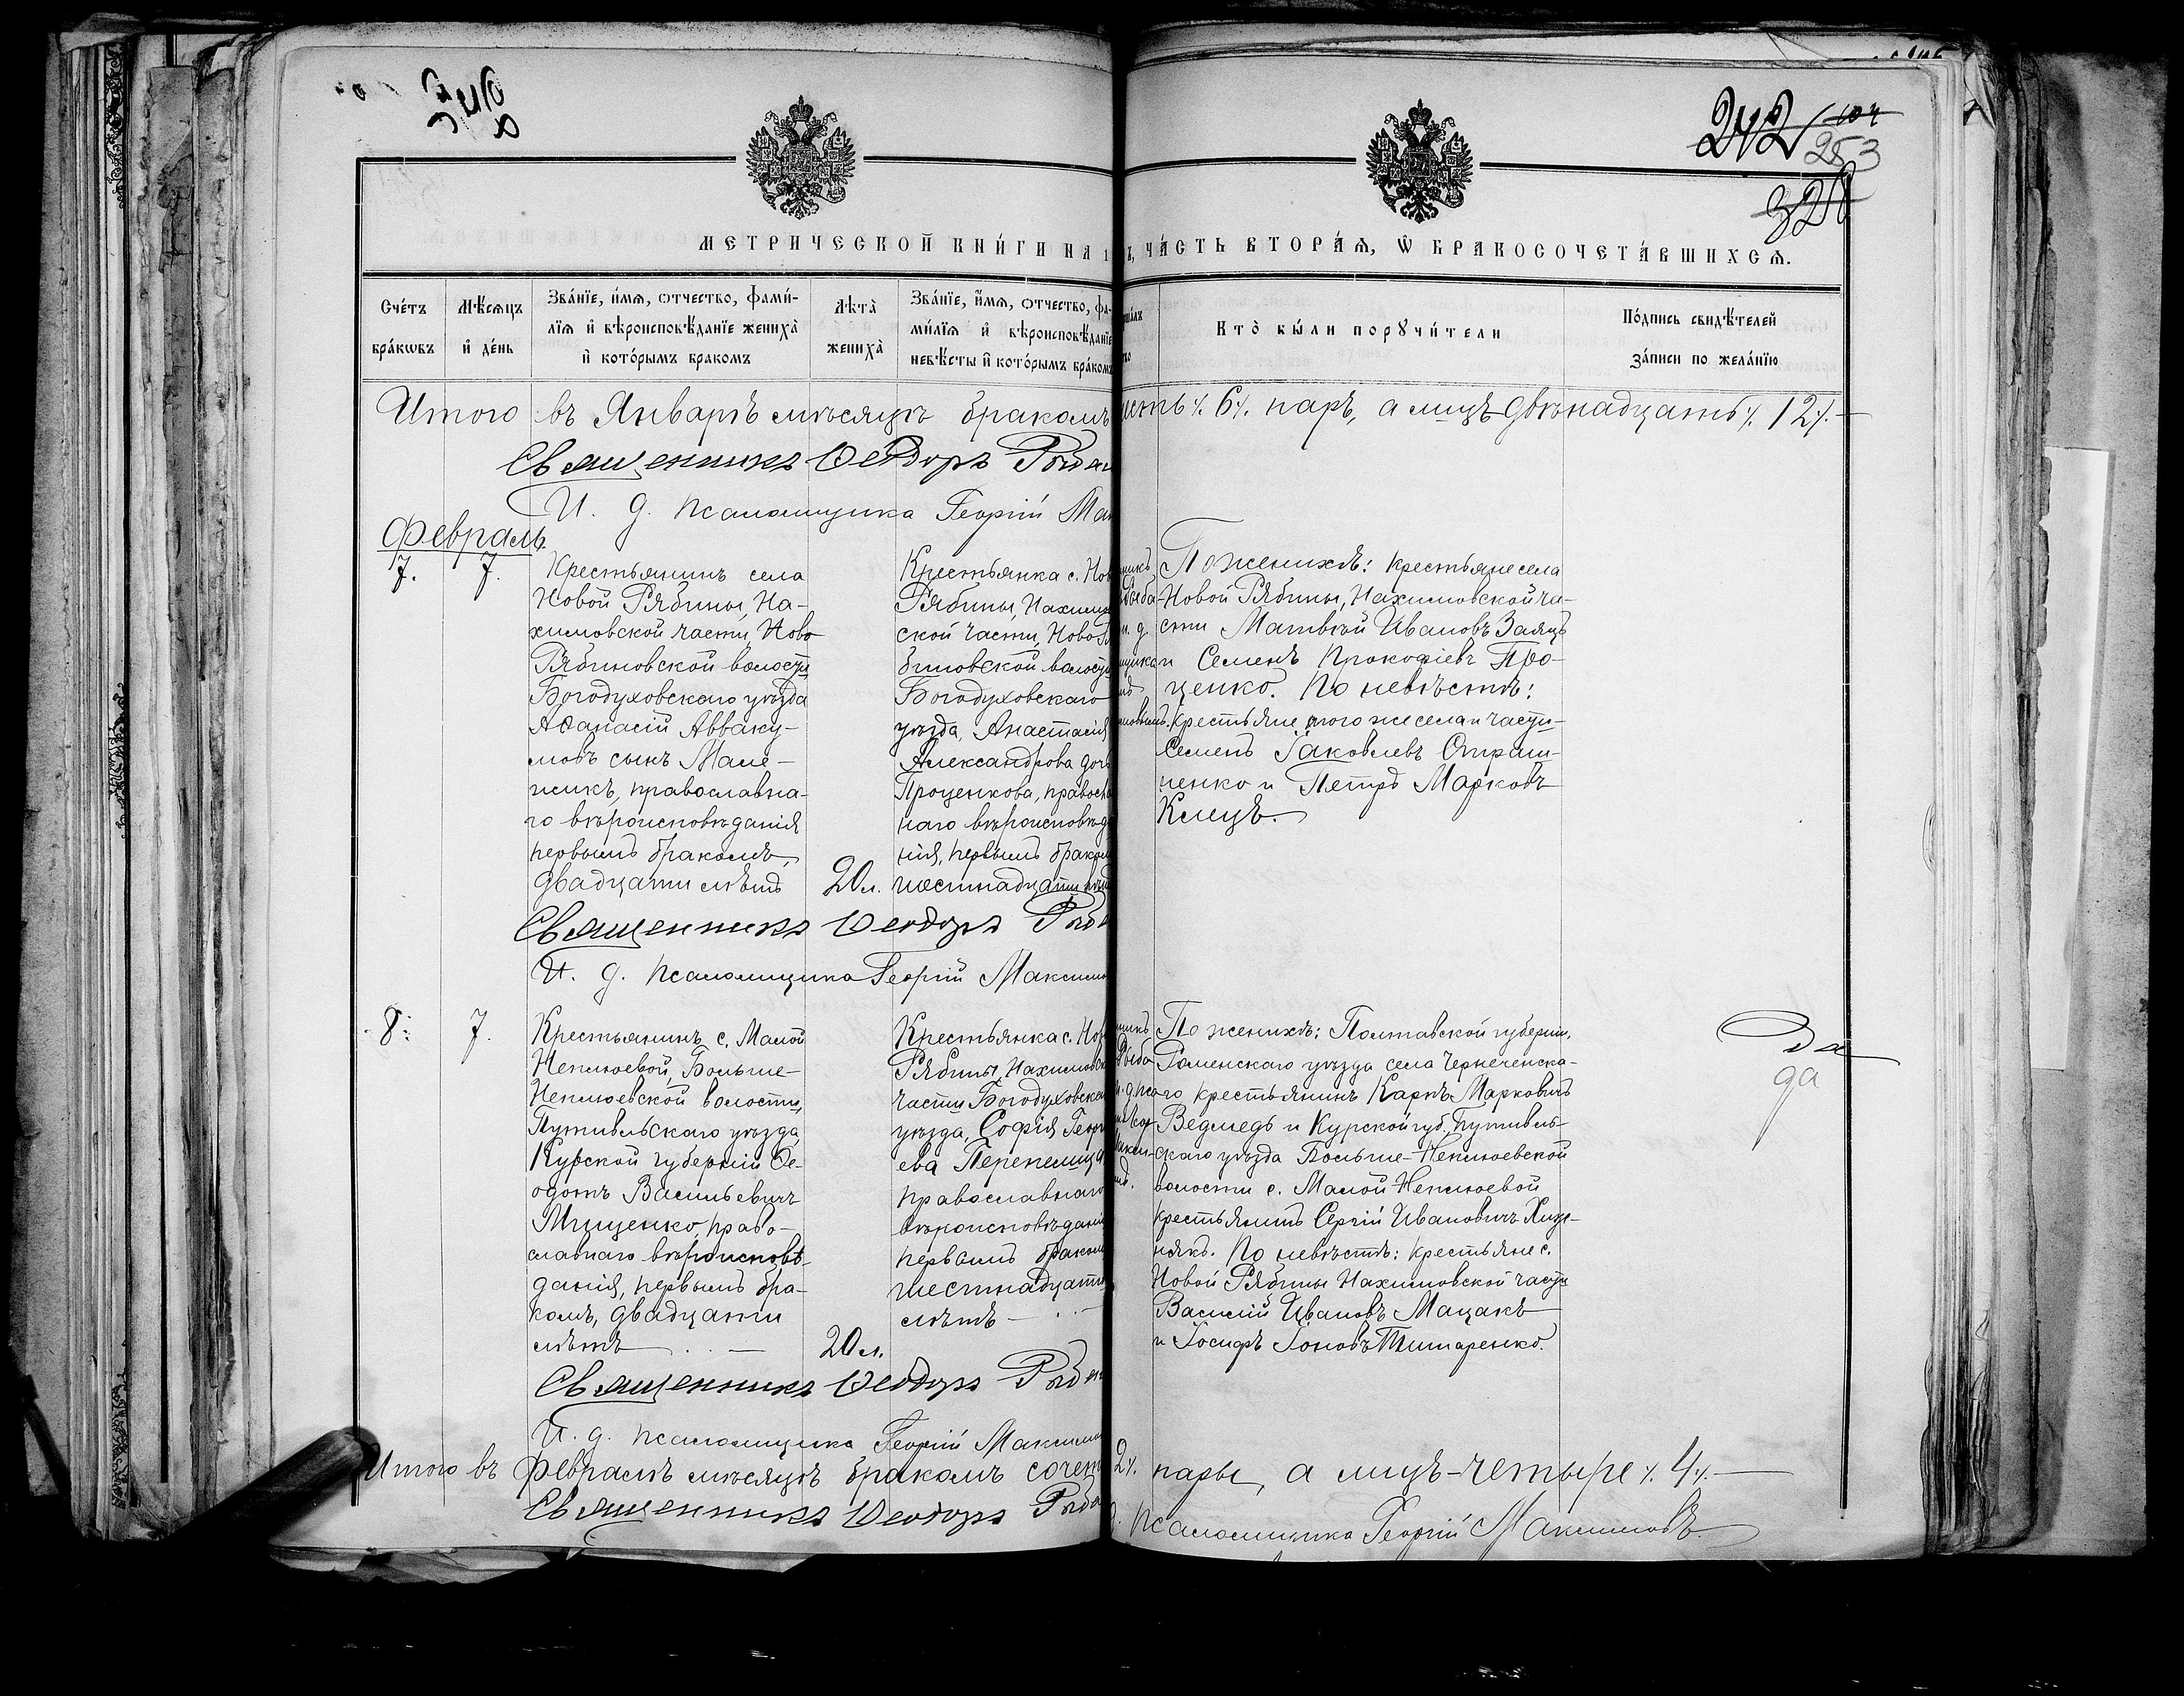 242 104
253
328
МЕТРИЧЕСКОЙ КНИ́ГИ НА 1
ЧА́СТЬ ВТОРА́Ѧ, Ѽ БРАКОСОЧЕТА́ВШИХСѦ.
Счётъ бра́кѡвъ
Мѣ́сѧцъ и҆ де́нь
Зва́нїе, и҆́мѧ, ѻтчество, фами́-
лїѧ и҆ вѣроисповѣ́данїе жениха̀
и҆ кото́рымъ бракомъ
Лѣта̀ жениха̀
Зва́нїе, и҆́мѧ, ѻтчество, фа-
ми́лїѧ и҆ вѣроисповѣ́данїе
невѣ́сты и҆ кото́рымъ бра́комъ
Кто̀ бы́ли порꙋчи́тели
По́дпись свидѣ́телей
за́писи по жела́нїю
Итого въ Январѣ мѣсяцѣ бракомъ
6 паръ, а лицъ двѣнадцать 12
Священникъ Ѳеодоръ
И. д. псаломщика Георгій
Февраль
7. 7.
Крестьянинъ села
Новой Рябины, На-
химовской части, Ново
Рябиновской волости
Богодуховскаго уѣзда
Аѳанасій Авваку-
мовъ сынъ Мале-
жикъ, православна-
го вѣроисповѣданія
первымъ бракомъ,
двадцати лѣтъ
20 л.
Крестьянка с.
Рябины,
ской части,
биновской волости
Богодуховскаго
уѣзда, Анастасія
Александрова дочь
Проценкова,
наго
нія, первымъ
шестнадцати
По женихѣ: крестьяне села
Новой Рябины, Нахимовской ча-
сти Матвѣй Ивановъ Заяцъ
и Семенъ Прокофіевъ Про-
ценко. По невѣстѣ:
крестьяне того же села и части
Семенъ Іаковлевъ
ненко и Петръ Марковъ
Клецъ.
Священникъ Ѳеодоръ
И. д. псаломщика Георгій
8. 7.
Крестьянинъ с. Малой
Неплюевой, Больше-
Неплюевской волости,
Путивльскаго уѣзда
Курской губерніи Ѳе-
одотъ Васильевичъ
Мищенко, право-
славнаго вѣроисповѣ-
данія, первымъ бра-
комъ, двадцати
лѣтъ
20 л.
Крестьянка с.
Рябины,
части
уѣзда, Софія
ева
православнаго
вѣроисповѣданія
первымъ
шестнадцати
лѣтъ
По женихѣ: Полтавской губерніи,
Роменскаго уѣзда села Чернеченска-
го крестьянинъ Карпъ Марковичъ
Ведмедь и Курской губ. Путивль-
скаго уѣзда Больше-Неплюевской
волости с. Малой Неплюевой
крестьянинъ Сергій Ивановичъ
По невѣстѣ: крестьяне с.
Новой Рябины Нахимовской части
Василій Ивановъ Мацакъ
и Іосифъ Іоновъ Титаренко.
да
Священникъ Ѳеодоръ
И. д. псаломщика Георгій
Итого въ Февралѣ мѣсяцѣ бракомъ
2 пары, а лицъ - четыре 4
Священникъ Ѳеодоръ
псаломщика Георгій Максимовъ.